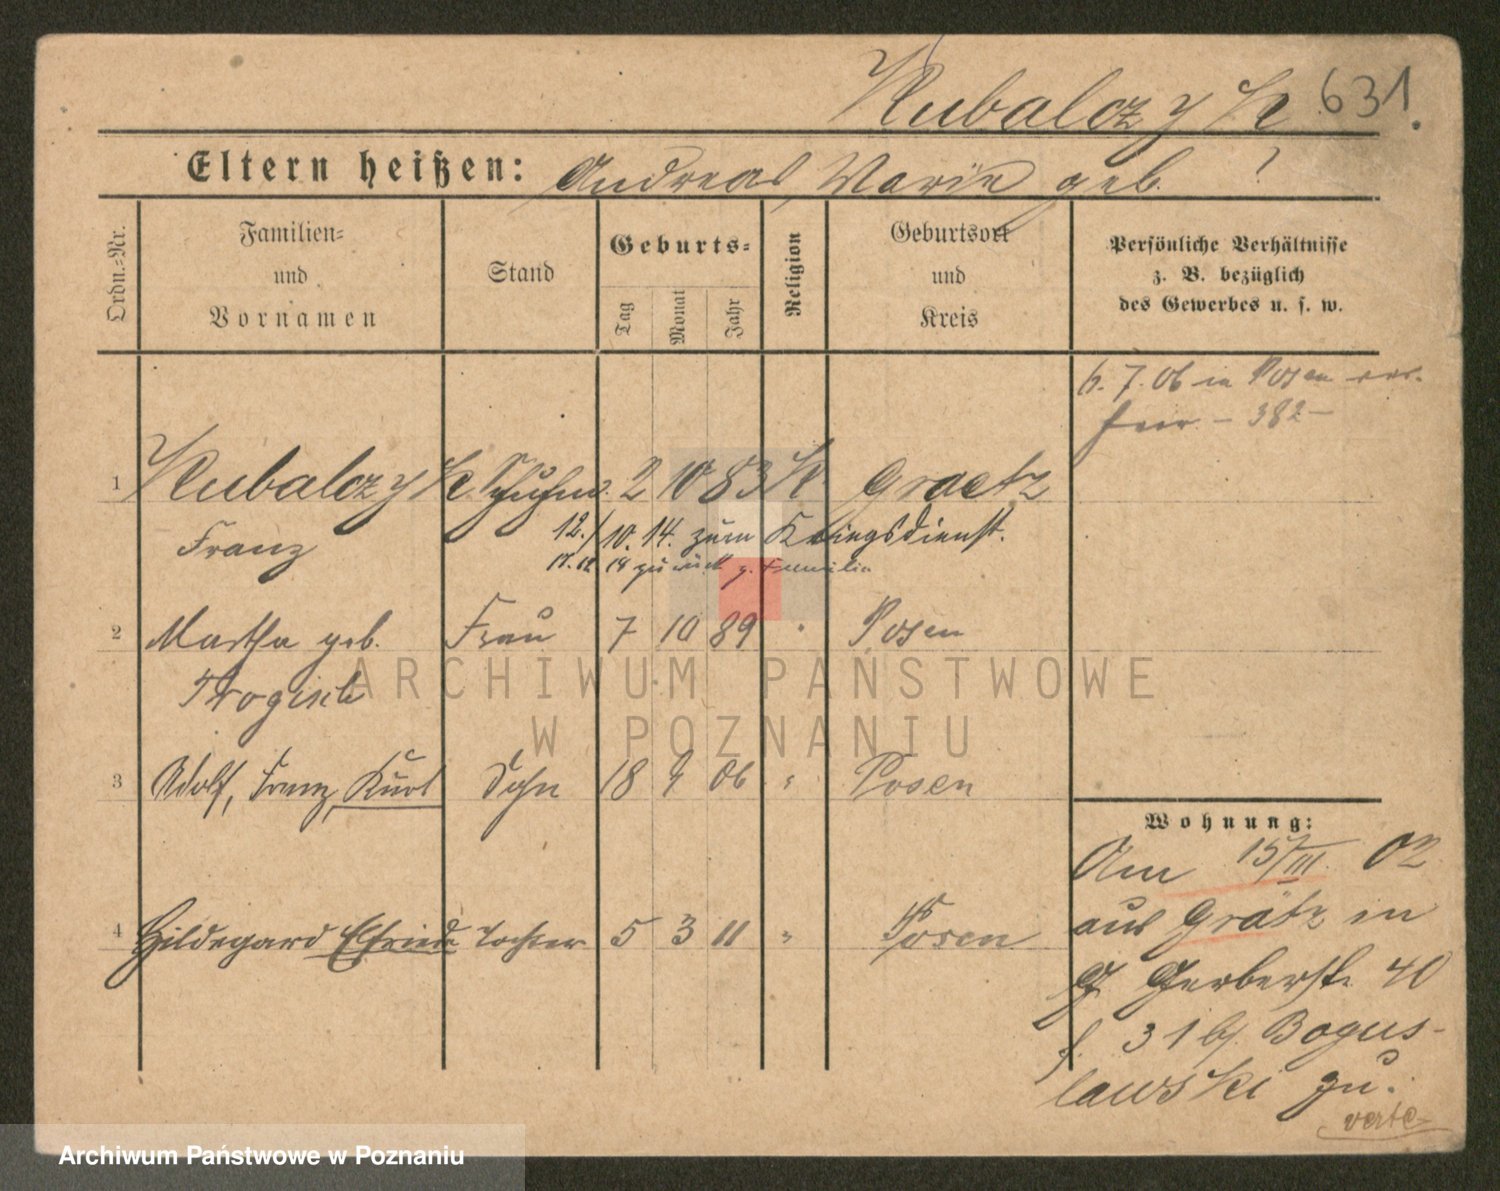 Kubalczyk 631.
Eltern heißen: Andreas Marie geb. ?
Ordn.=Nr.
Familien=
und
Vornamen
Stand
Geburts=
Tag
Monat
Jahr
Religion
Geburtsort
und
Kreis
Persönliche Verhältnisse
z. B. bezüglich
des Gewerbes u. s. w.
6. 7. 06 in Posen ver-
heir. – 382 –
1 Kubalczyk Schuhm. 2 10 83 K Graetz
Franz
12./10. 14. zum Kriegsdienst.
14 zurück z. Familie
2 Martha geb. Frau 7 10 89 " Posen
Trogisch
ARCHIWUM PAŃSTWOWE
W POZNANIU
3 Adolf, Franz, Kurt Sohn 18 9 06 " Posen
4 Hildegard Elfriede Tochter 5 3 11 " Posen
Wohnung:
Am 15/III. 02
aus Grätz in
Gerberstr. 40
31 b/. Bogus-
lawski zu.
verte
Archiwum Państwowe w Poznaniu